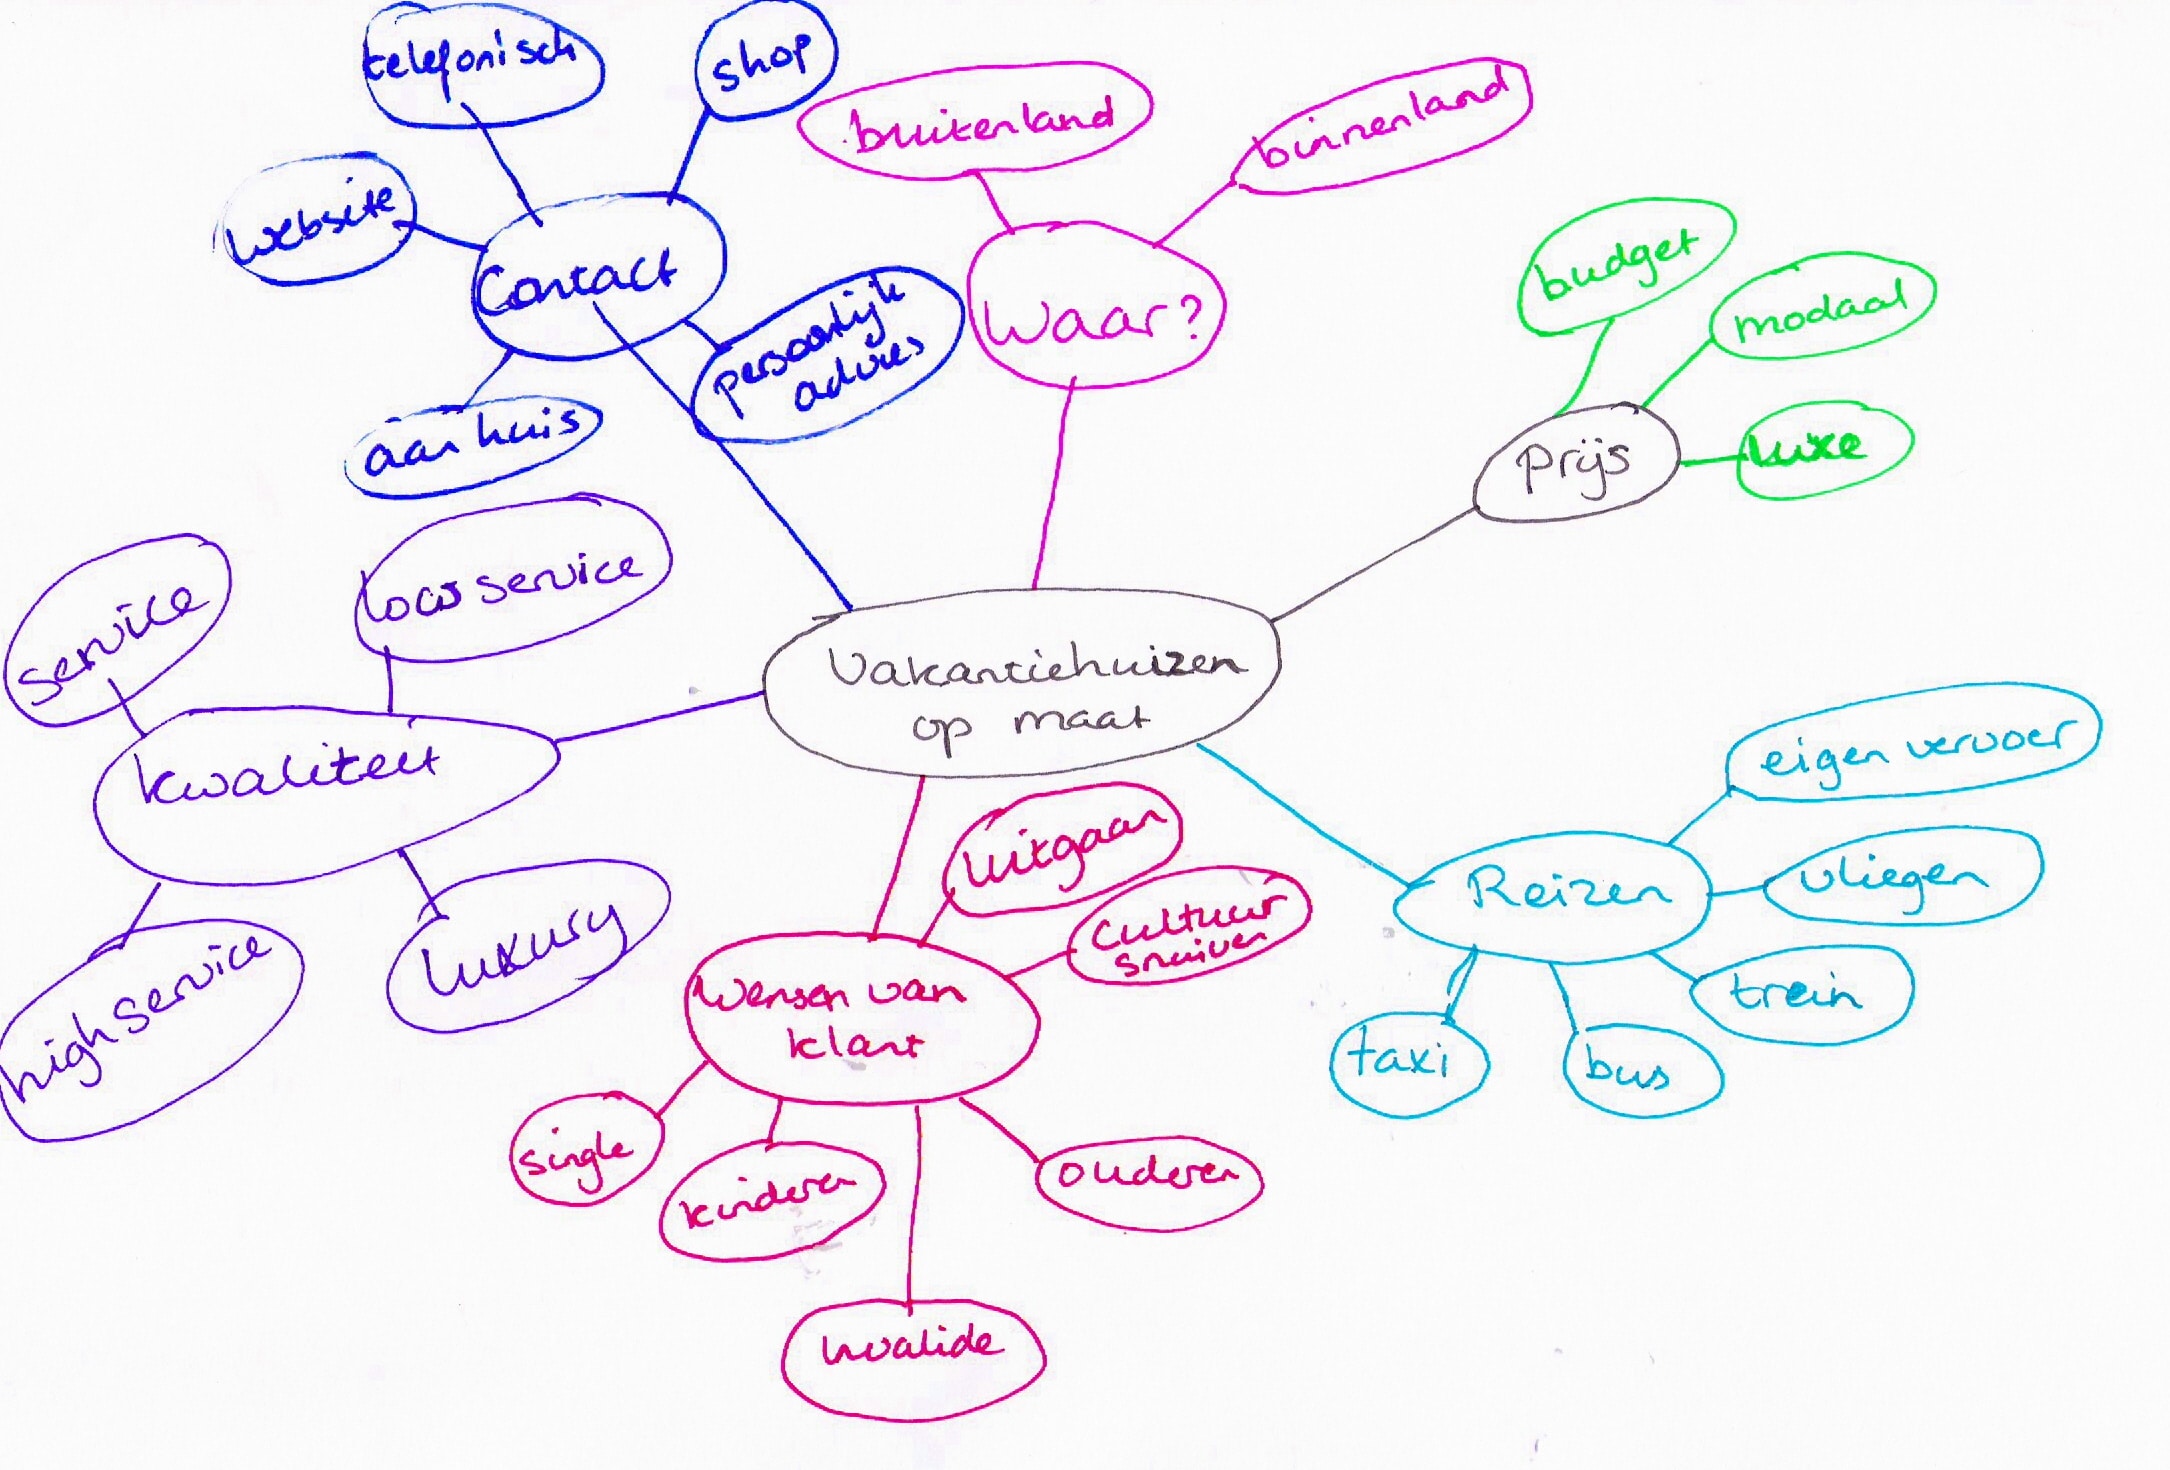 telefonisch
shop
website
Contact
persoonlijk
advies
aan huis
buitenland
binnenland
Waar?
budget
modaal
luxe
Prijs
Vakantiehuizen
op maat
service
low service
kwaliteit
high service
luxury
uitgaan
Cultuur
snuiven
Wensen van
klant
single
kinderen
invalide
ouderen
Reizen
eigen vervoer
vliegen
trein
bus
taxi